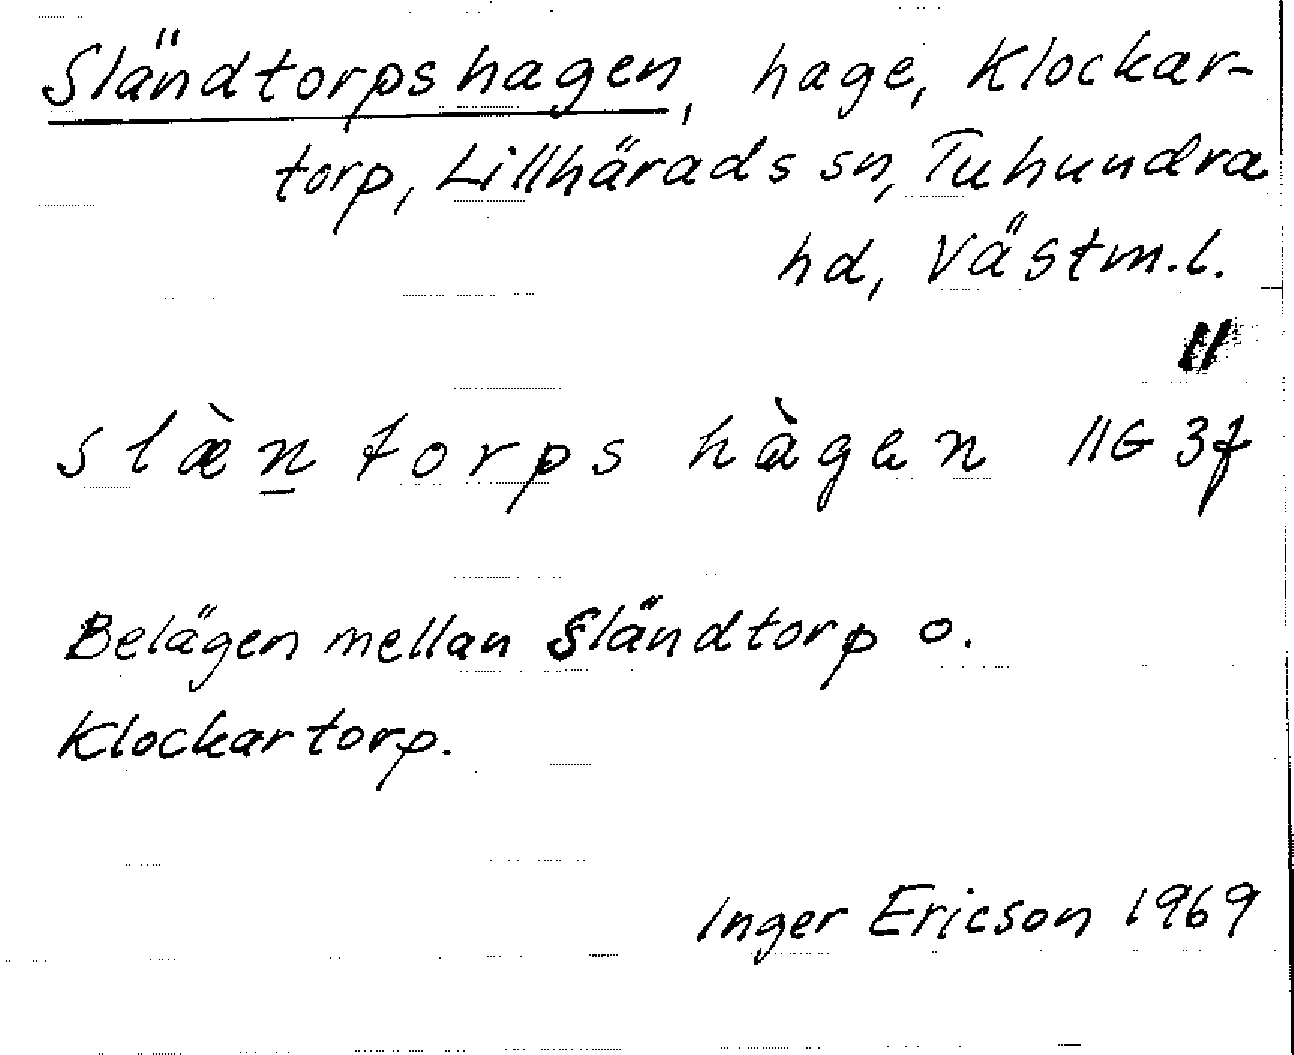 Sländtorpshagen, hage, Klockar-
torp, Lillhärads sn, Tuhundra
hd, Västm.l.
II
slæ̀n̠torps hàgen 11G 3f
Belägen mellan Sländtorp o.
Klockartorp.
Inger Ericson 1969